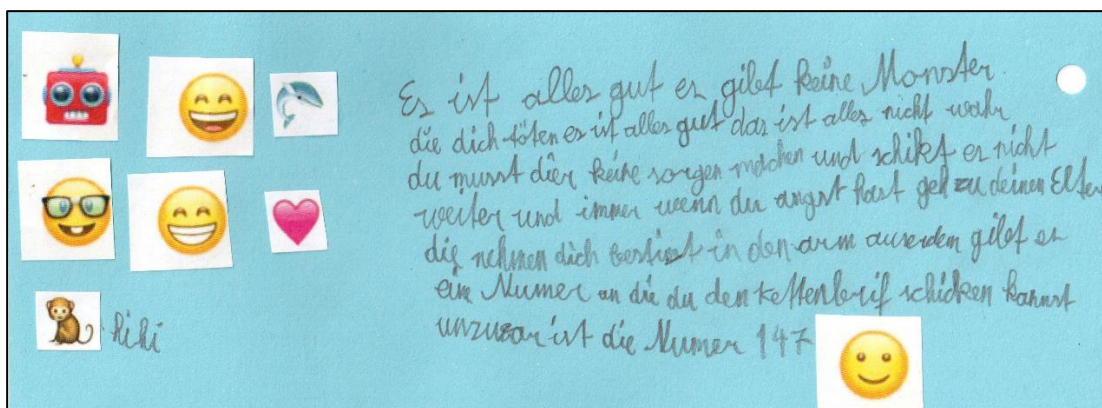 Es ist alles gut es gibt keine Monster
die dich töten es ist alles gut das ist alles nicht wahr
du musst dier keine sorgen machen und schikt es nicht
weiter und immer wenn du angst hast geh zu deinen Elter
die nehmen dich bestimt in den arm auserdem gibt es
eine Numer an die du den kettenbrif schicken kannst
unzwar ist die Numer 147
hihi